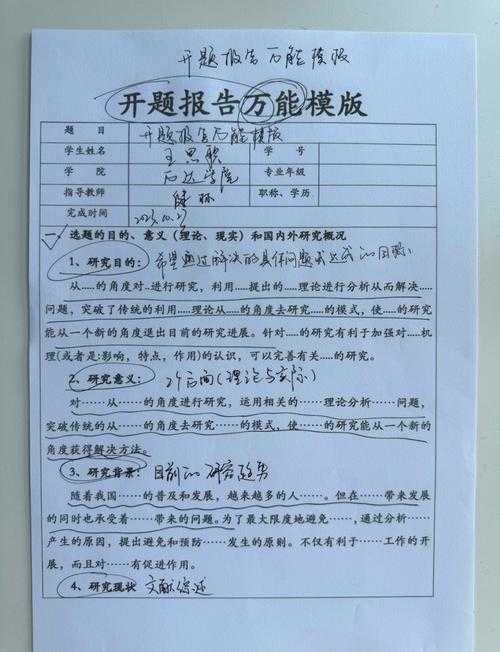 开题报告万能模版
开题报告万能模版
题 目 开题报告万能模版
学生姓名 王思聪 学 号
学 院 学院 专业年级
指导教师 职称、学历
完成时间 2023.10.23
一、选题的目的、意义（理论、现实）和国内外研究概况
1、研究目的： 希望通过解决的具体问题或达成的目标
从.....的角度对..进行研究，利用.....提出的....理论进行分析从而解决....
问题，突破了传统的利用.....理论从....的角度去研究....的模式，使....的研究
能从一个新的角度退出目前的研究进展。针对....的研究有利于加强对....机
理(或者是:影响，特点，作用)的认识，可以完善有关....的研究。
2、研究意义： 2个方面(理论与实际)
对······从······的角度进行研究，运用相关的······理论分析······问题，
突破传统的从······的角度去研究······的模式，使······的研究能从一个新的
角度获得解决方法。
3、研究背景： 目前的研究趋势
随着我国······的普及和发展，越来越多的人······。但在······带来发展
的同时也承受着······带来的问题。为了最大限度地避免······，通过分析····
产生的原因，提出避免和预防······发生的原则。不仅有利于······工作的开
展，而且对······有促进作用。
4、研究现状 文献综述